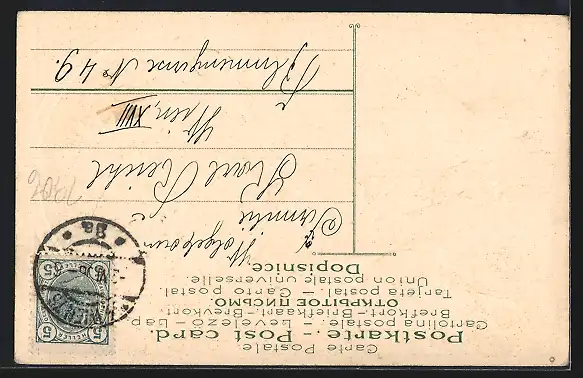 Carte Postale.
Postkarte. - Post card.
Cartolina postale. - Levelező-Lap.
Brefkort - Briefkaart - Brevkort.
ОТКРЫТОЕ ПИСЬМО.
Tarjeta postal. - Carto postal
Union postale universelle.
Dopisnice.
5 HELLER 5
Wohlgeboren
Familie
Karl Reichl
Wien, XVIII
No 49.
1906